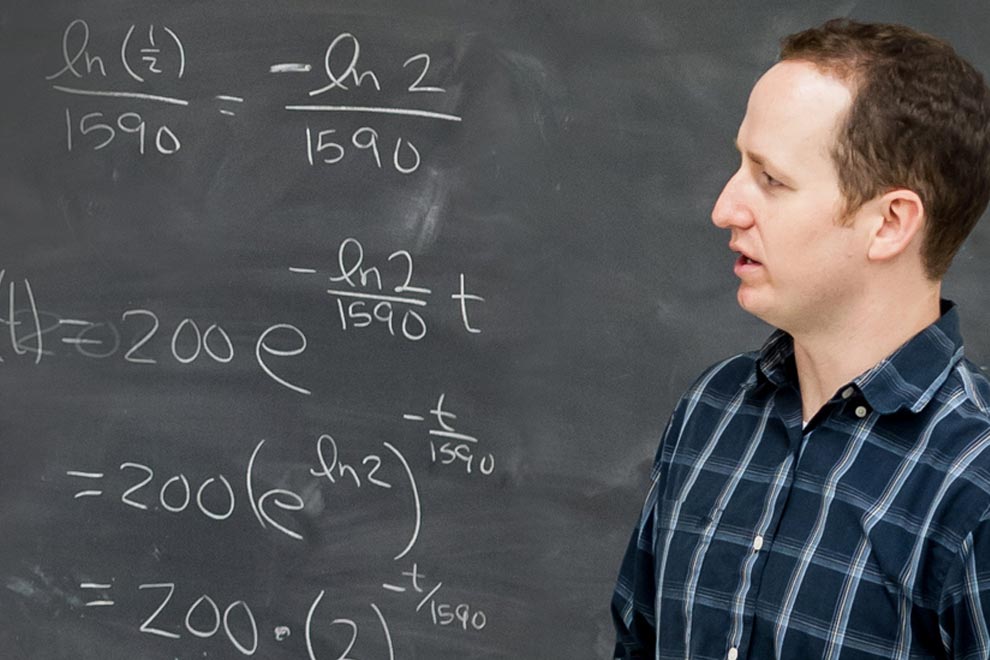 ln(1/2)/1590 = -ln 2/1590
(t) = 200 e^(-ln2/1590 t)
= 200 (e^(ln2))^(-t/1590)
= 200 · (2)^(-t/1590)